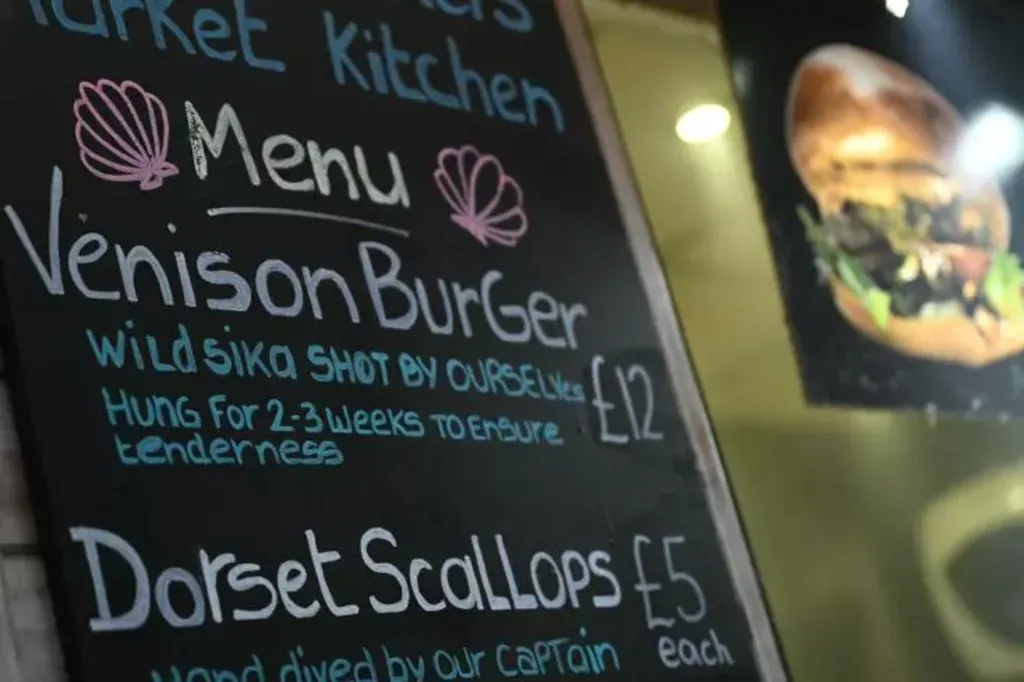 Market Kitchen
Menu
Venison Burger
Wild Sika SHOT BY OURSELVes
HUNG For 2-3 weeks To Ensure
tenderness
£12
Dorset Scallops £5
each
Hand dived by our Captain